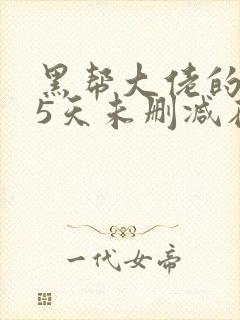 黑帮大佬的
5天未删减
一代女帝